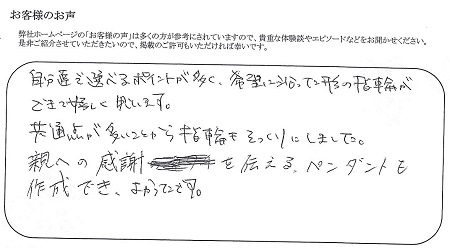 お客様のお声
弊社ホームページの「お客様の声」は多くの方が参考にされていますので、貴重な体験談やエピソードなどをお聞かせください。
是非ご紹介させていただきたいので、掲載のご許可もいただければ幸いです。
自分達で選べるポイントが多く、希望に沿った形の指輪が
できて嬉しく思います。
共通点が多いことから指輪もそっくりにしました。
親への感謝を伝える、ペンダントも
作成でき、よかったです。